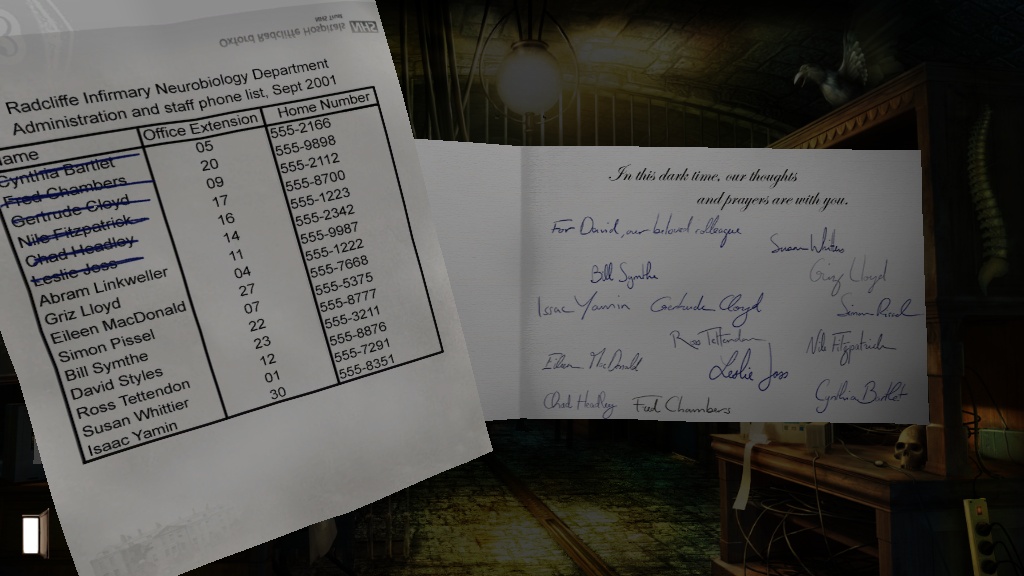 Oxford Radcliffe Hospitals NHS
NHS Trust
Radcliffe Infirmary Neurobiology Department
Administration and staff phone list, Sept 2001
Name Office Extension Home Number
Cynthia Bartlet 05 555-2166
Fred Chambers 20 555-9898
Gertrude Cloyd 09 555-2112
Nile Fitzpatrick 17 555-8700
Chad Headley 16 555-1223
Leslie Joss 14 555-2342
Abram Linkweller 11 555-9987
Griz Lloyd 04 555-1222
Eileen MacDonald 27 555-7668
Simon Pissel 07 555-5375
Bill Symthe 22 555-8777
David Styles 23 555-3211
Ross Tettendon 12 555-8876
Susan Whittier 01 555-7291
Isaac Yamin 30 555-8351
In this dark time, our thoughts
and prayers are with you.
For David, our beloved colleague
Susan
Bill Symthe
Griz Lloyd
Isaac Yamin Gertrude Cloyd
Simon
Ross Tettendon
Nile Fitzpatrick
Eileen McDonald
Leslie Joss
Cynthia Bartlet
Chad Headley Fred Chambers